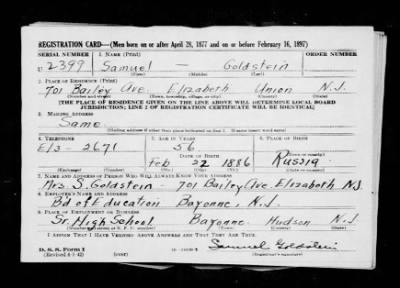 REGISTRATION CARD—(Men born on or after April 28, 1877 and on or before February 16, 1897)
SERIAL NUMBER 1. NAME (Print) ORDER NUMBER
U 2399 Samuel — Goldstein
(First) (Middle) (Last)
2. PLACE OF RESIDENCE (Print)
701 Bailey Ave. Elizabeth Union N.J.
(Number and street) (Town, township, village, or city) (County) (State)
[THE PLACE OF RESIDENCE GIVEN ON THE LINE ABOVE WILL DETERMINE LOCAL BOARD
JURISDICTION; LINE 2 OF REGISTRATION CERTIFICATE WILL BE IDENTICAL]
3. MAILING ADDRESS
Same
(Mailing address if other than place indicated on line 2. If same insert word same)
4. TELEPHONE 5. AGE IN YEARS 6. PLACE OF BIRTH
El 3- 2671 56
DATE OF BIRTH
Feb 22 1886 Russia
7. NAME AND ADDRESS OF PERSON WHO WILL ALWAYS KNOW YOUR ADDRESS
Mrs. S. Goldstein - 701 Bailey Ave. Elizabeth N.J.
8. EMPLOYER'S NAME AND ADDRESS
Bd of Education Bayonne, N.J.
9. PLACE OF EMPLOYMENT OR BUSINESS
Sr. High School Bayonne Hudson N.J.
(Number and street or R. F. D. number) (Town) (County) (State)
I AFFIRM THAT I HAVE VERIFIED ABOVE ANSWERS AND THAT THEY ARE TRUE.
D. S. S. Form 1
(Revised 4-1-42) (over) Samuel Goldstein
(Registrant's signature)